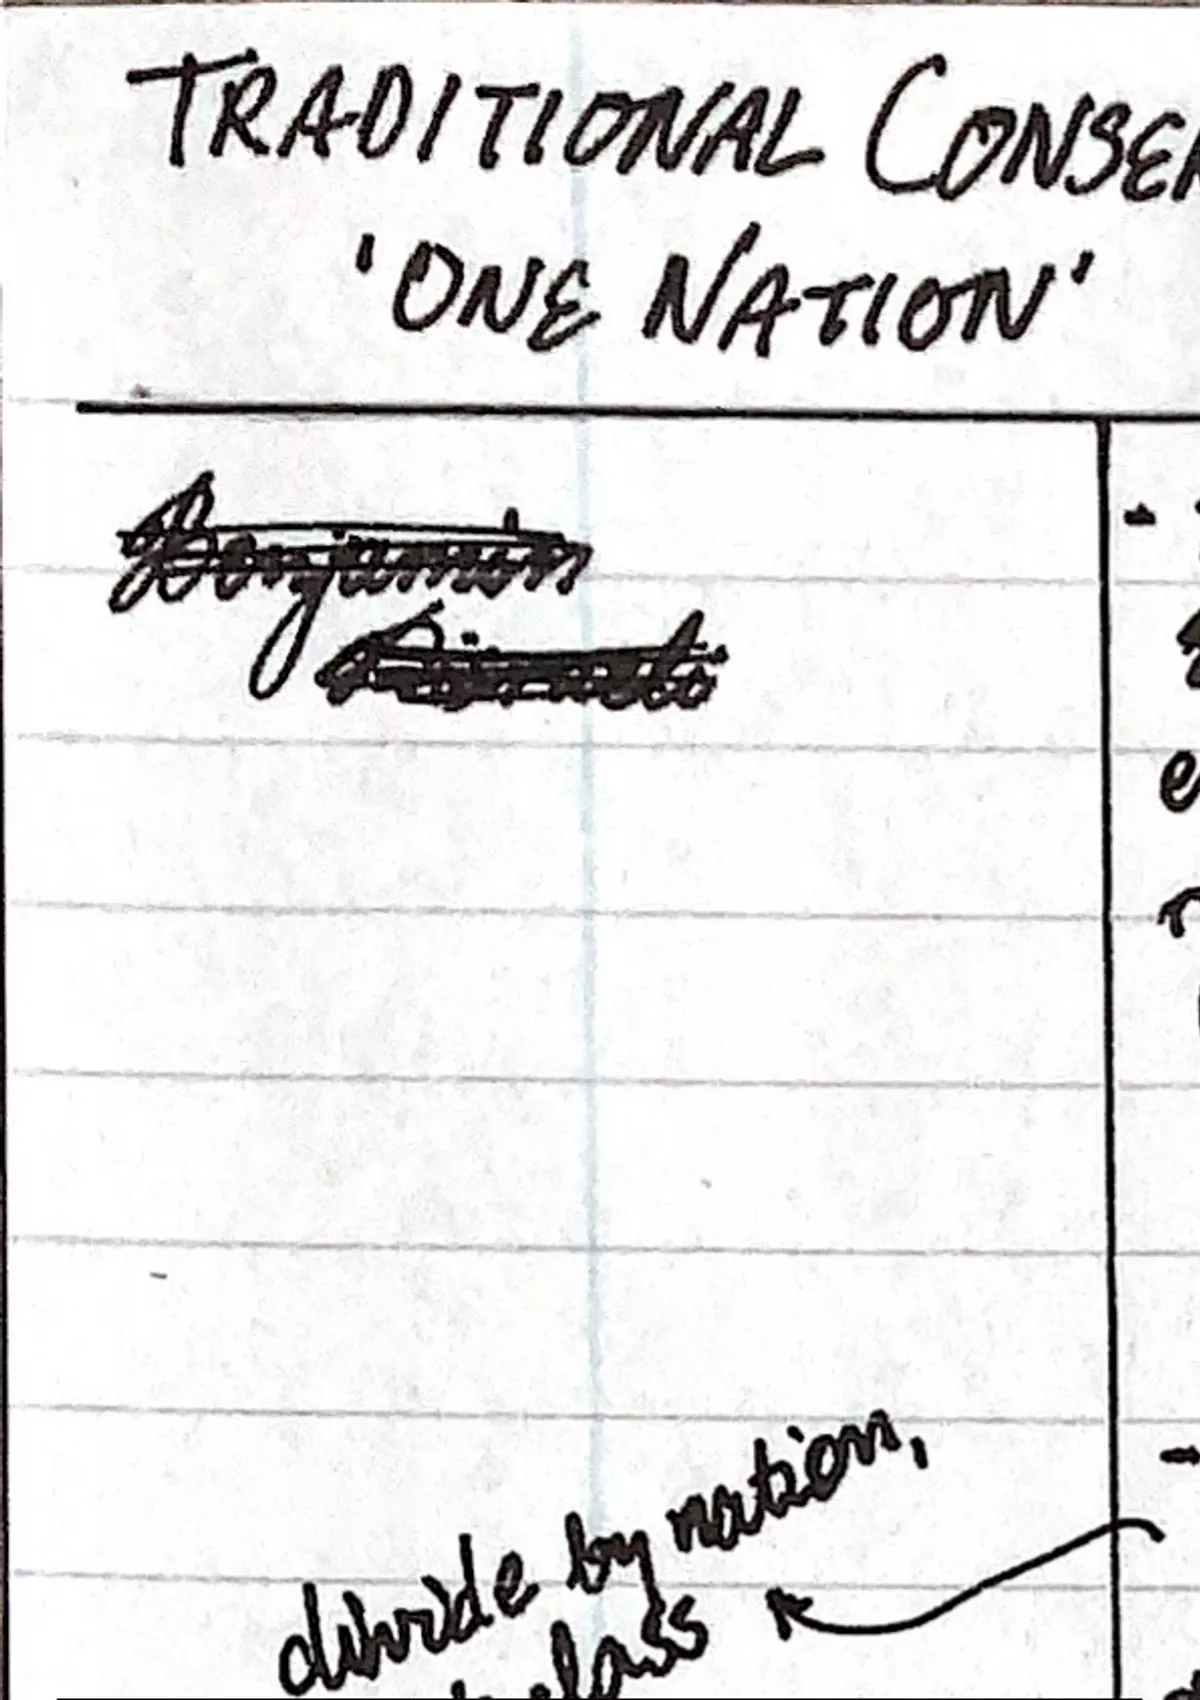 TRADITIONAL CONSER
'ONE NATION'
Benjamin
divide by nation,
class